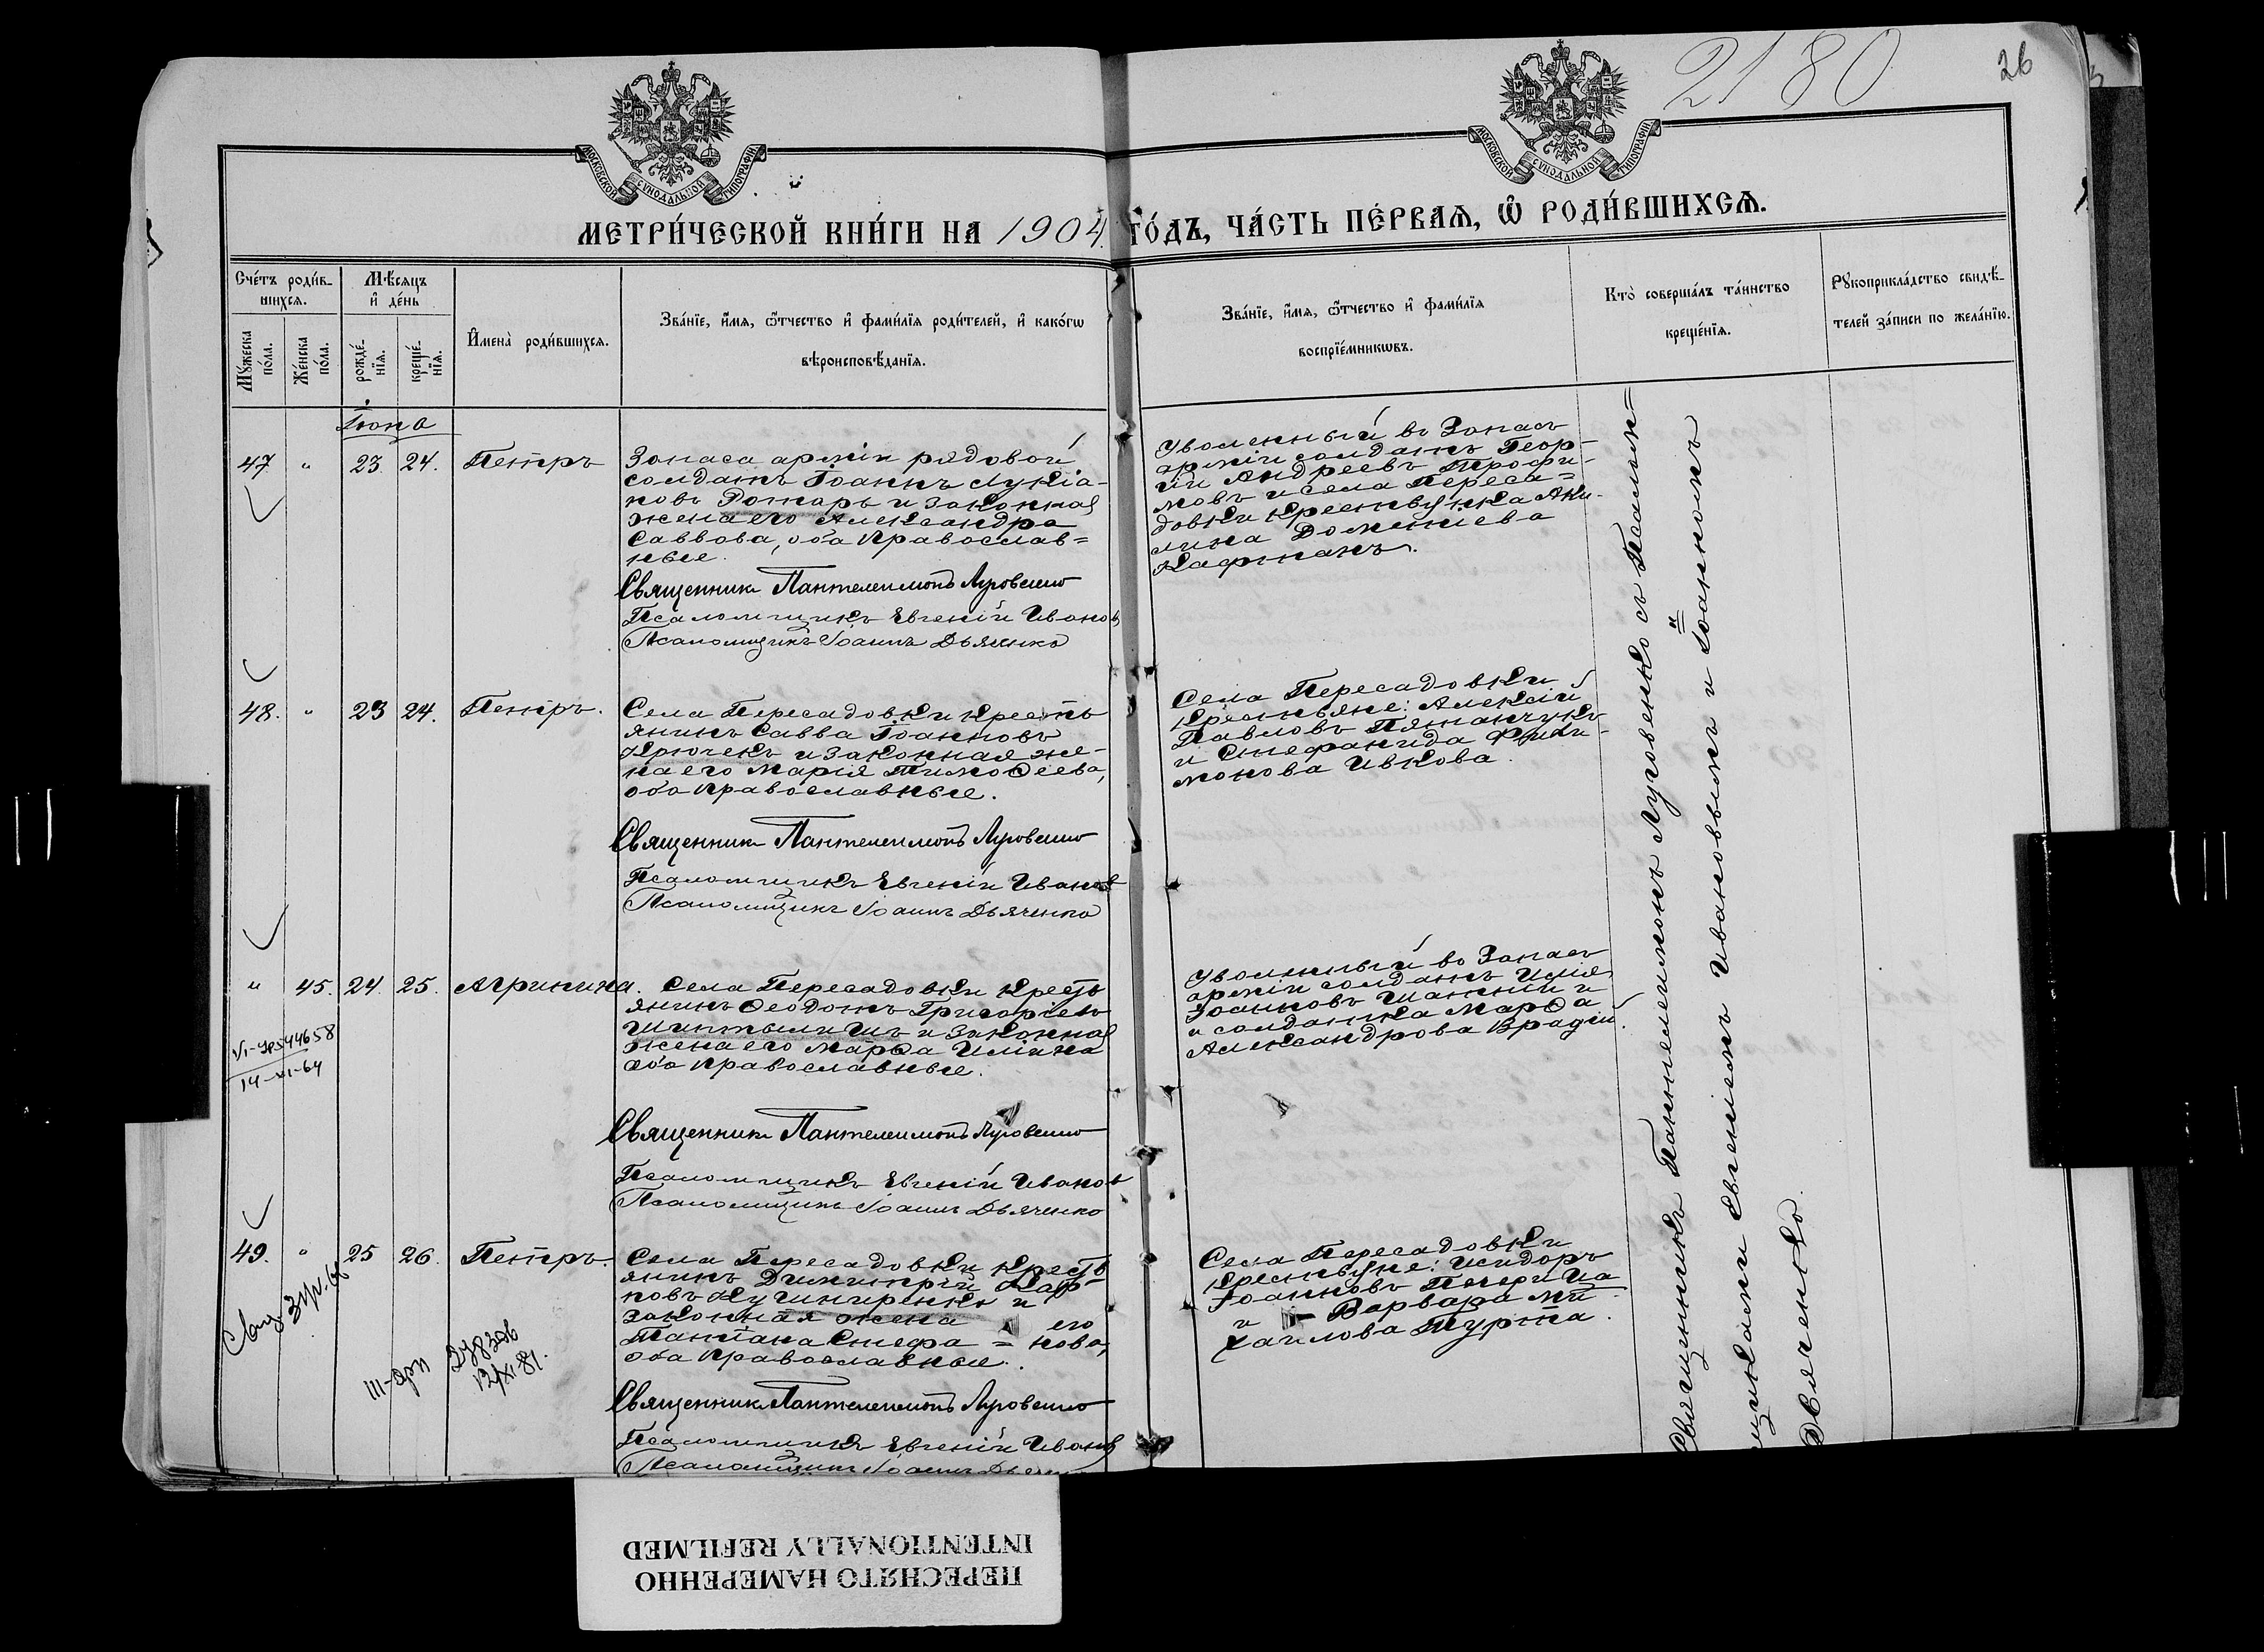 2180
26
МОСКОВСКОЙ СѴНОДАЛЬНОЙ ТИПОГРАФІИ
МОСКОВСКОЙ СѴНОДАЛЬНОЙ ТИПОГРАФІИ
МЕТРИ́ЧЕСКОЙ КНИ́ГИ НА 1904. ГО́ДЪ, ЧА́СТЬ ПЕ́РВАѦ, Ѽ РОДИ́ВШИХСѦ.
Сче́тъ роди́в-
шихсѧ.
Мѣ́сѧцъ
и҆ де́нь
Мꙋ́жеска по́ла.
Же́нска по́ла.
рожде́-
нїѧ.
креще́-
нїѧ.
И҆мена̀ роди́вшихсѧ.
Зва́нїе, и҆́мѧ, ѻ҆́тчество и҆ фами́лїѧ роди́телей, и҆ како́гѡ
вѣроисповѣ́данїѧ.
Зва́нїе, и҆́мѧ, ѻ҆́тчество и҆ фами́лїѧ
воспрїе́мникѡвъ.
Кто̀ соверша́лъ та́инство
креще́нїѧ.
Рꙋкоприкла́дство свидѣ́-
телей за́писи по жела́нїю.
Іюна
47 " 23 24. Петръ
Запаса арміи рядовой
солдатъ Іоаннъ Лукіа-
новъ Ротарь и законная
жена его Александра
Саввова, оба православ=
ные.
Священникъ Пантелеимонъ Луговенко
Псаломщикъ Евгеній Иванов
Псаломщикъ Іоаннъ Дьяченко
Уволенный въ Запасъ
арміи солдатъ Геор-
гій Андреевъ Трофи-
мовъ и села Переса=
довки крестьянка Аки-
лина Дометіева
Кафтанъ.
48. " 23 24. Петръ.
Села Пересадовки кресть
янинъ Савва Іоанновъ
Крючекъ и законная же-
на его Марія Тимоѳеева,
оба православные.
Священникъ Пантелеимонъ Луговенко
Псаломщикъ Евгеній Иванов
Псаломщикъ Іоаннъ Дьяченко
Села Пересадовки
крестьяне: Алексій
Павловъ Пятанчукъ
и Стефанида Фили-
монова Ивкова.
" 45. 24. 25. Агрипина.
Села Пересадовки кресть
янинъ Ѳеодотъ Григоріевъ
и законная
жена его Марѳа Иліина
оба православные.
Священникъ Пантелеимонъ Луговенко
Псаломщикъ Евгеній Иванов
Псаломщикъ Іоаннъ Дьяченко
Уволенный въ Запасъ
арміи солдатъ Илія
Іоанновъ
и солдатка Марѳа
Александрова Врадій.
14-VI-64
49. " 25 26. Петръ.
Села Пересадовки кресть
янинъ Димитрій Кар-
повъ Кучниренко и
законная жена его
Татіана Стефа=нова,
оба православные.
Священникъ Пантелеимонъ Луговенко
Псаломщикъ Евгеній Иванов
Псаломщикъ Іоаннъ
Села Пересадовки
крестьяне: Исидоръ
Іоанновъ Печерица
и Варвара Ми-
хаилова Турта.
12/XI 81.
Священникъ Пантелеимонъ Луговенко съ Псалом=
щиками Евгеніемъ Ивановымъ и Іоанномъ
Дьяченко.
ПЕРЕСНЯТО НАМЕРЕННО
INTENTIONALLY REFILMED